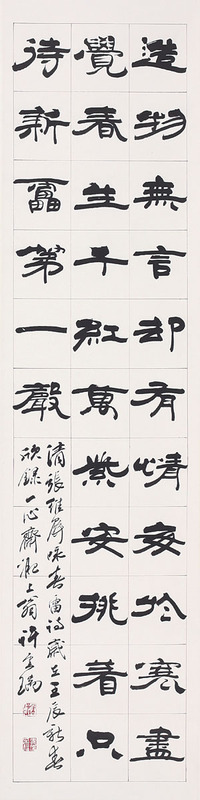 造物無言却有情每於寒盡
覺春生千紅萬紫安排着只
待新雷第一聲
清張維屏咏春雷詩歲在壬辰新春
欣錄一心齋